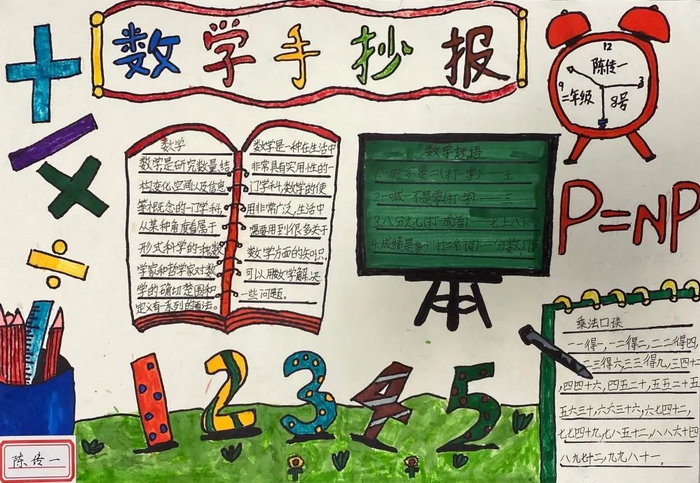 数学手抄报
12
9
3
陈传一
二年级
8号
数学
数学是研究数量、结
构变化、空间以及信息
等概念的一门学科,
从某种角度看属于
形式科学的一种数
学家和哲学家对数
学的确切范围和
定义有一系列的看法。
数学是一种在生活中
非常具有实用性的一
门学科,数学的使
用非常广泛,生活中
需要用到很多关于
数学方面的知识,
可以用数学解决
一些问题。
数学谜语
P=NP
乘法口诀
一一得一,一二得二,二二得四,
二三得六,三三得九,三四十二
四四十六,四五二十,五五二十五
五六三十,六六三十六,六七四十二,
七七四十九,七八五十二,八八六十四
八九七十二,九九八十一.
1 2 3 4 5
陈传一